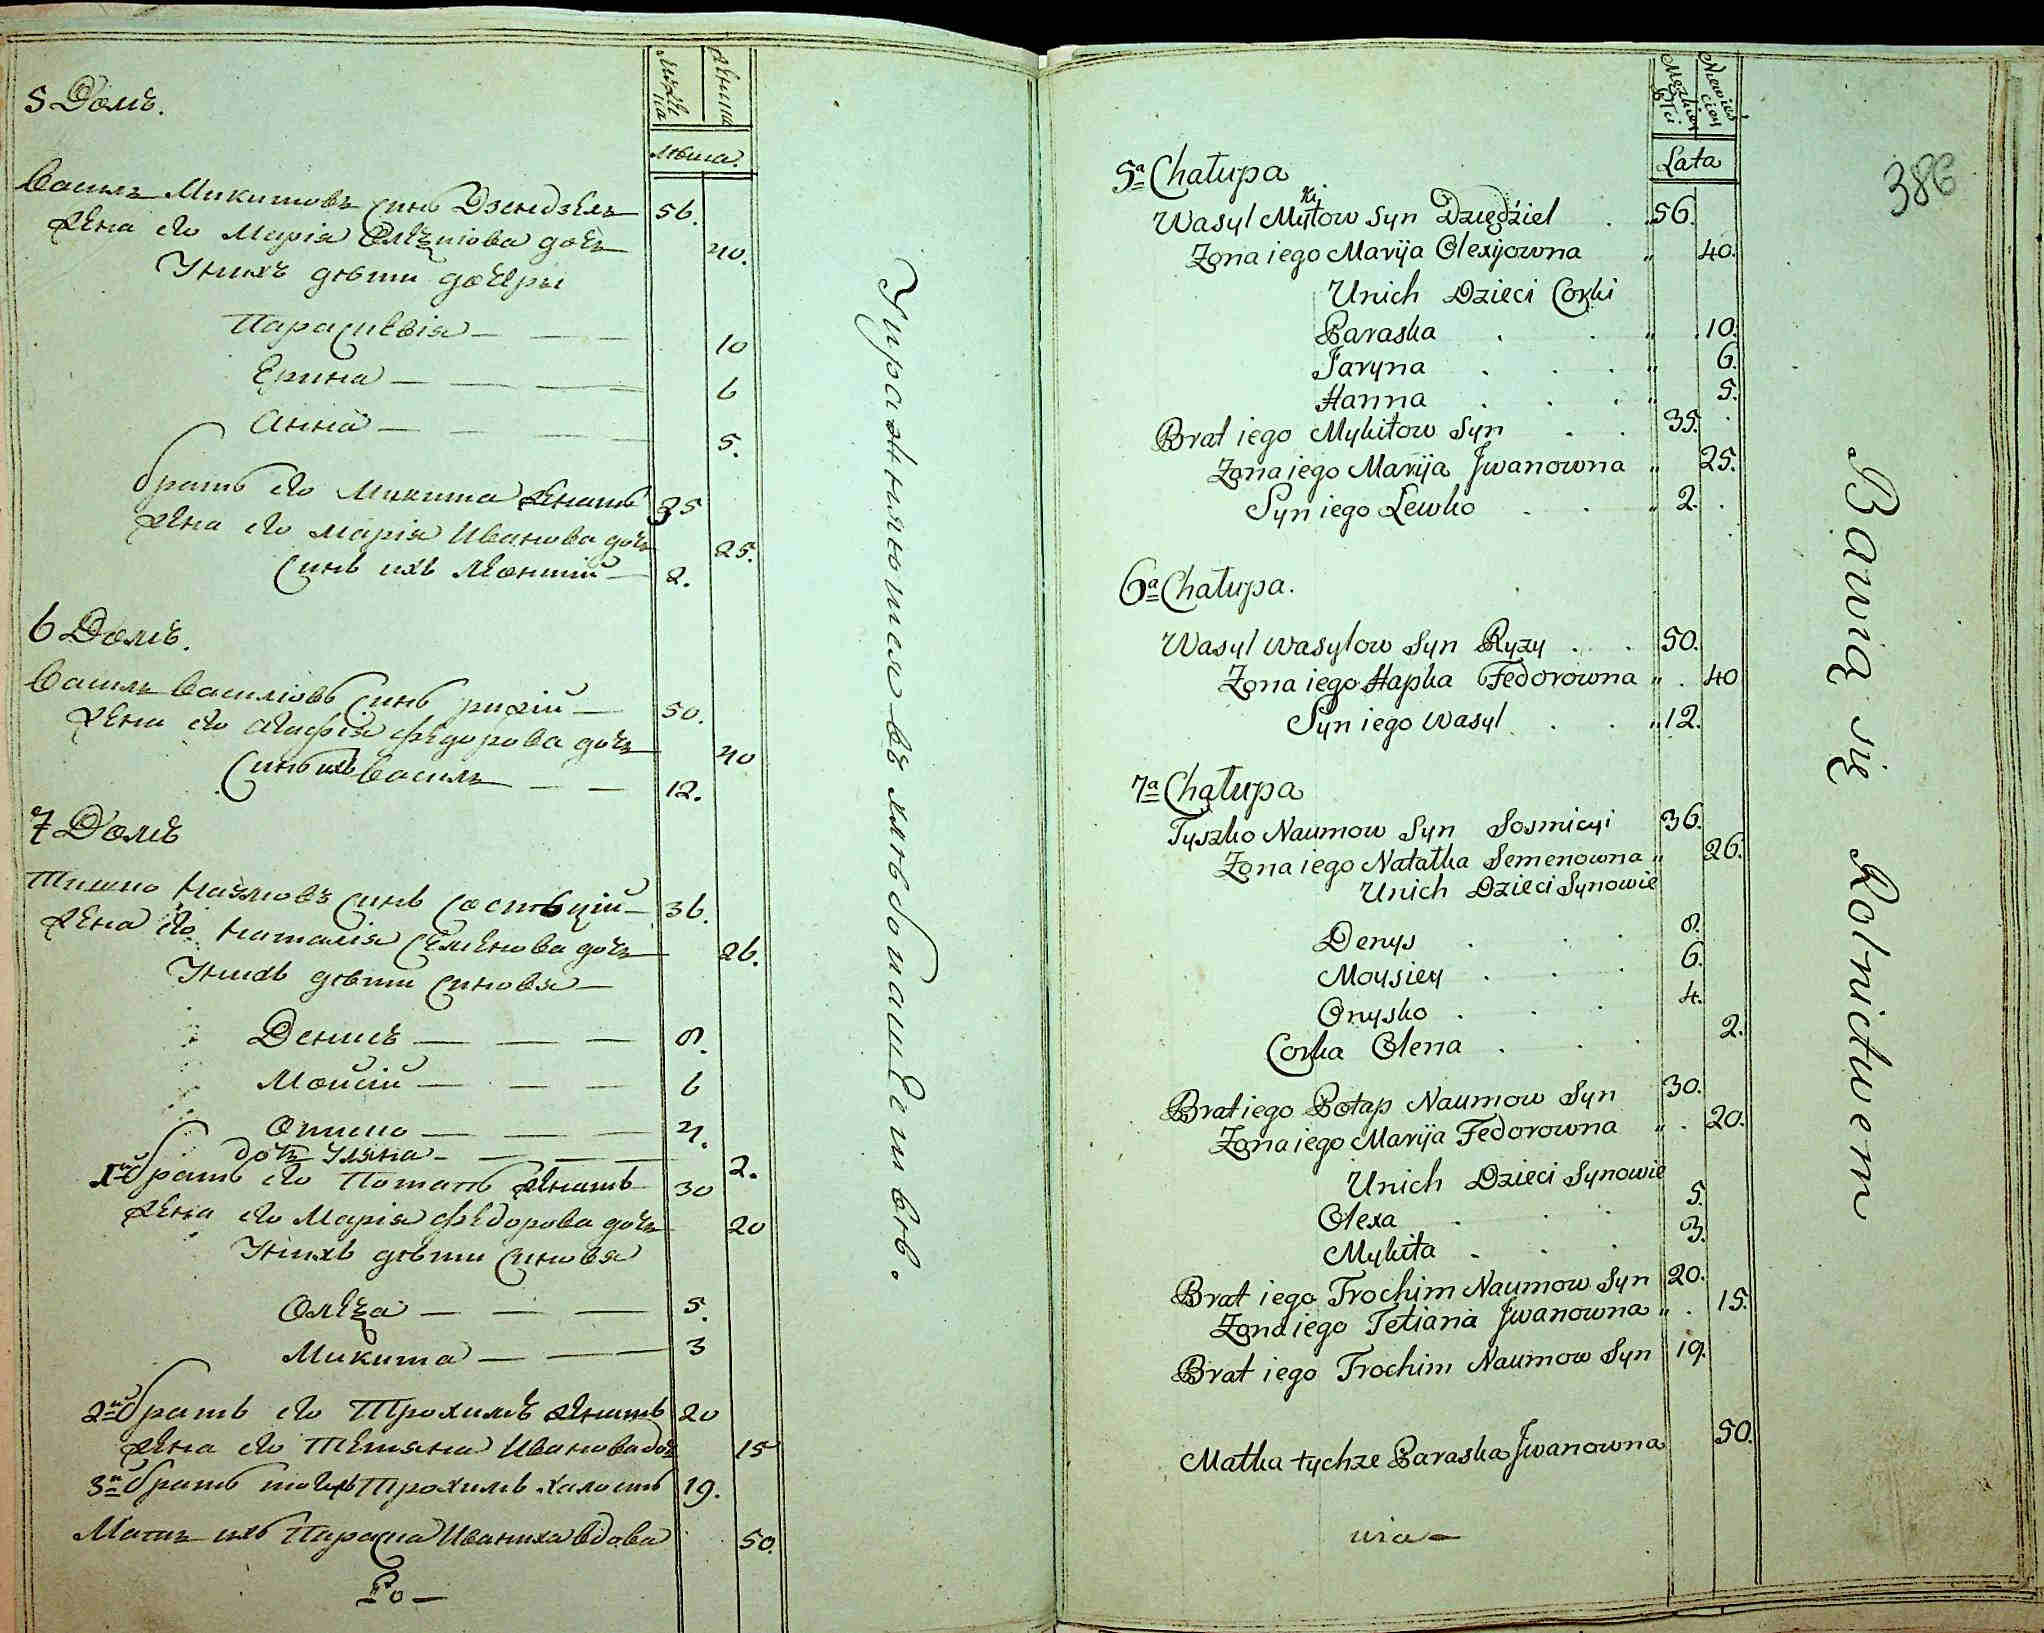 5 Домъ.
мужеска
женска
лѣта.
Василь Микитовъ синъ Дзендзѣль 56.
жена его Марія Олеѯіова дочь 40.
Унихъ дѣти дочеры
Параскевія 10
Ерина 6
Анна 5.
братъ его Микита женатъ 35
жена его Марія Иванова дочь 25.
Синъ ихъ Леонтій 2.
6 Домъ.
Василь Василіовъ синъ рижій 50.
жена его Агафія Федорова дочь 40
Синъ ихъ Василь 12.
7 Домъ
Тишко Наумовъ синъ 36.
жена его Наталія Семенова дочь 26.
Унихъ дѣти синовя
Денисъ 8.
Мойсій 6
Ониско 4.
дочь Уляна 2.
1й братъ его Потапъ женатъ 30
жена его Марія Федорова дочь 20
Унихъ дѣти синовя
Олеѯа 5.
Микита 3
2й братъ его Трохимъ женатъ 20
жена его Тетяна Иванова дочь 15
3й братъ Трохимъ холостъ 19.
Мать ихъ Параска Иваниха вдова 50.
Ро
Упражняются въ хлѣбопашествѣ.
386
Męzkiey Płci
Niewieściey
Lata
5a Chałupa
Wasyl Mykitow Syn Dzięđziel 56.
Zona iego Maryja Olexijowna 40.
Unich Dzieci Corki
Paraska 10.
Jaryna 6.
Hanna 5.
Brat iego Mykitow Syn 35.
Zona iego Maryja Jwanowna 25.
Syn iego Lewko 2.
6a Chałupa.
Wasyl Wasylow Syn Ryzy 50.
Zona iego Hapka Fedorowna 40
Syn iego Wasyl 12.
7a Chałupa
Tyszko Naumow Syn Sosnicyi 36.
Zona iego Natałka Semenowna 26.
Unich Dzieci Synowie
Denys 8.
Moysiey 6.
Onysko 4.
Corka Olena 2.
Brat iego Potap Naumow Syn 30.
Zona iego Maryja Fedorowna 20.
Unich Dzieci Synowie
Olexa 5.
Mykita 3.
Brat iego Trochim Naumow Syn 20.
Zona iego Tetiana Jwanowna 15.
Brat iego Trochim Naumow Syn 19.
Matka tychze Paraska Jwanowna 50.
Bawią się Rolnictwem